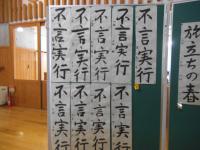 不言実行
不言実行
不言実行
不言実行
不言実行
不言実行
不言実行
不言実行
不言実行
旅立ちの春